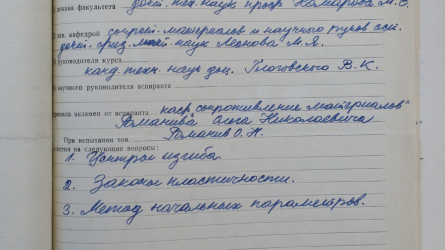 декана факультета докт. тех. наук проф. Комарова М. С.
зав. кафедрой сопрот. материалов и научного руков. асп.
докт. физ. мат. наук Леонова М. Я.
руководителя курса
канд. техн. наук доц. Глоговского В. К.
научного руководителя аспиранта
экзамен от аспиранта каф. „сопротивление материалов"
Романива Олега Николаевича
При испытании тов. Романив О. Н.
на следующие вопросы:
1. Центры изгиба.
2. Законы пластичности.
3. Метод начальных параметров.